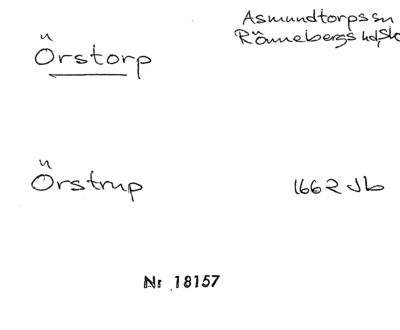 Asmundtorps sn
Rönnebergs hd, Sk
Örstorp
Örstrup
1662 Jb
Nr 18157